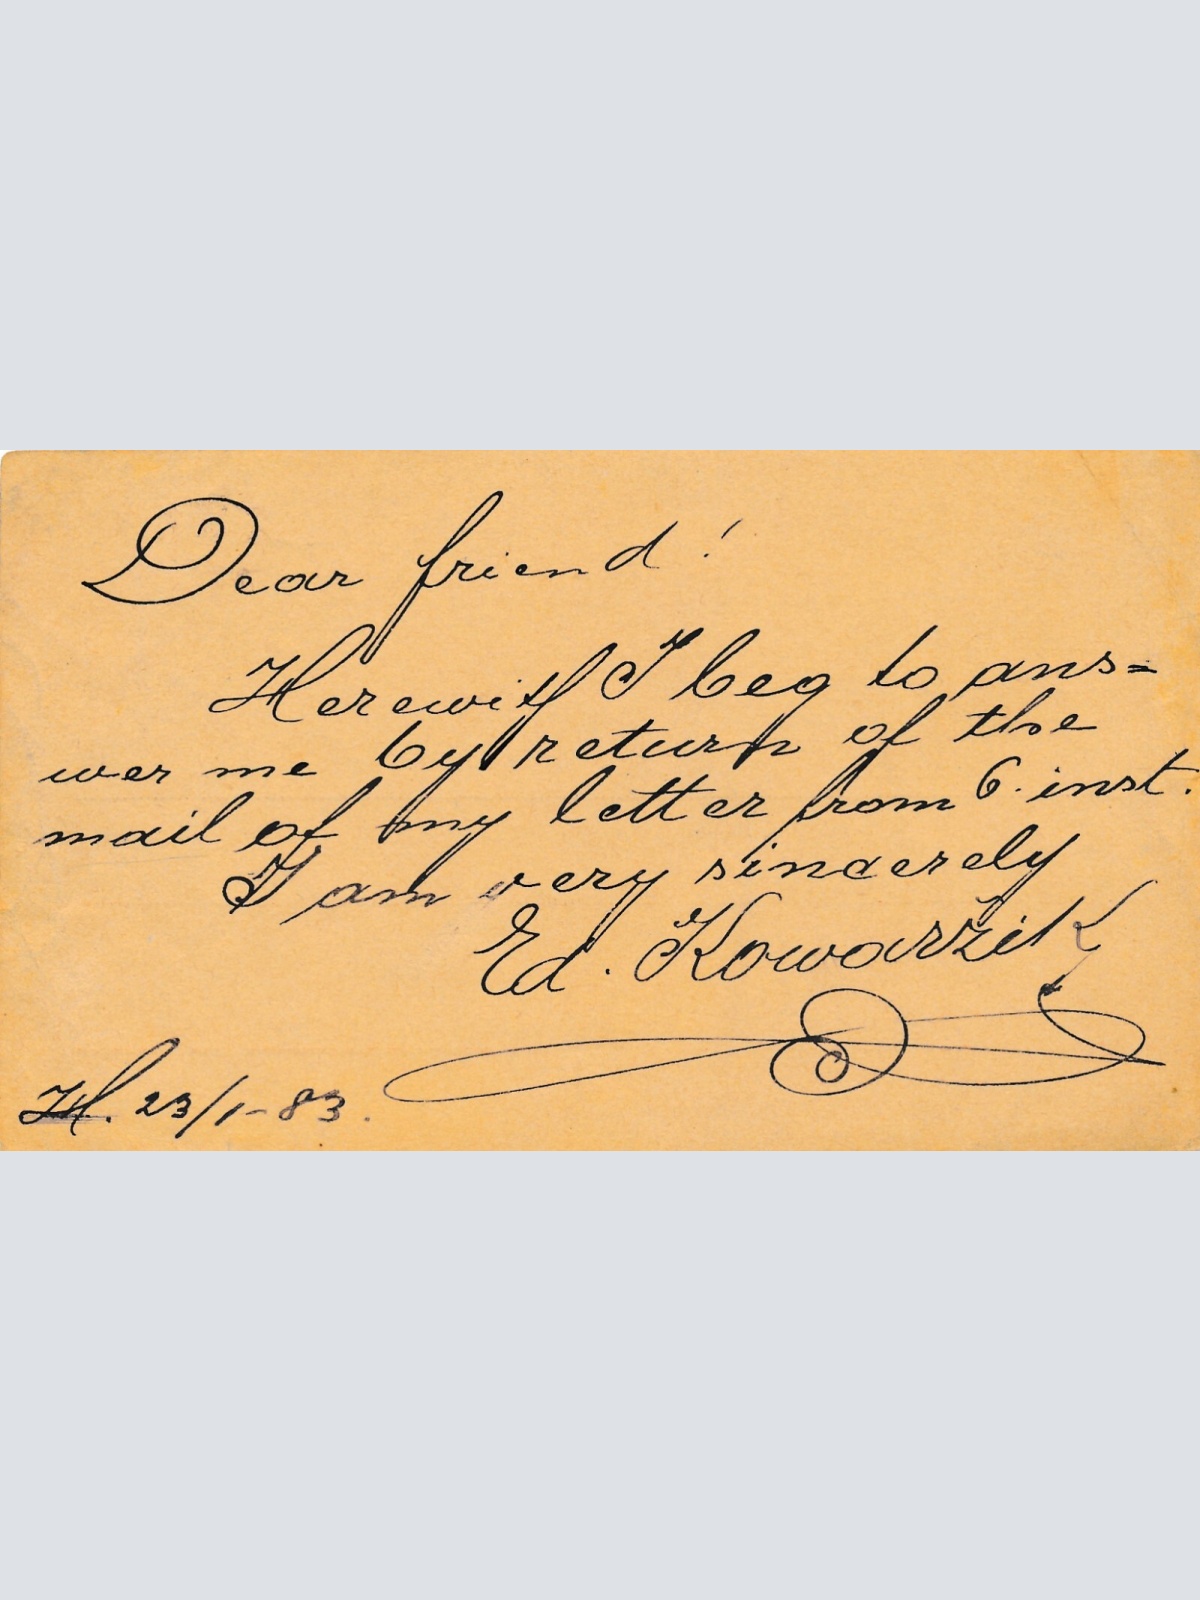 Dear friend!
Herewith I beg to ans=
wer me by return of the
mail of my letter from 6. inst.
I am very sincerely
Ed. Kowarzik
H. 23/1-83.